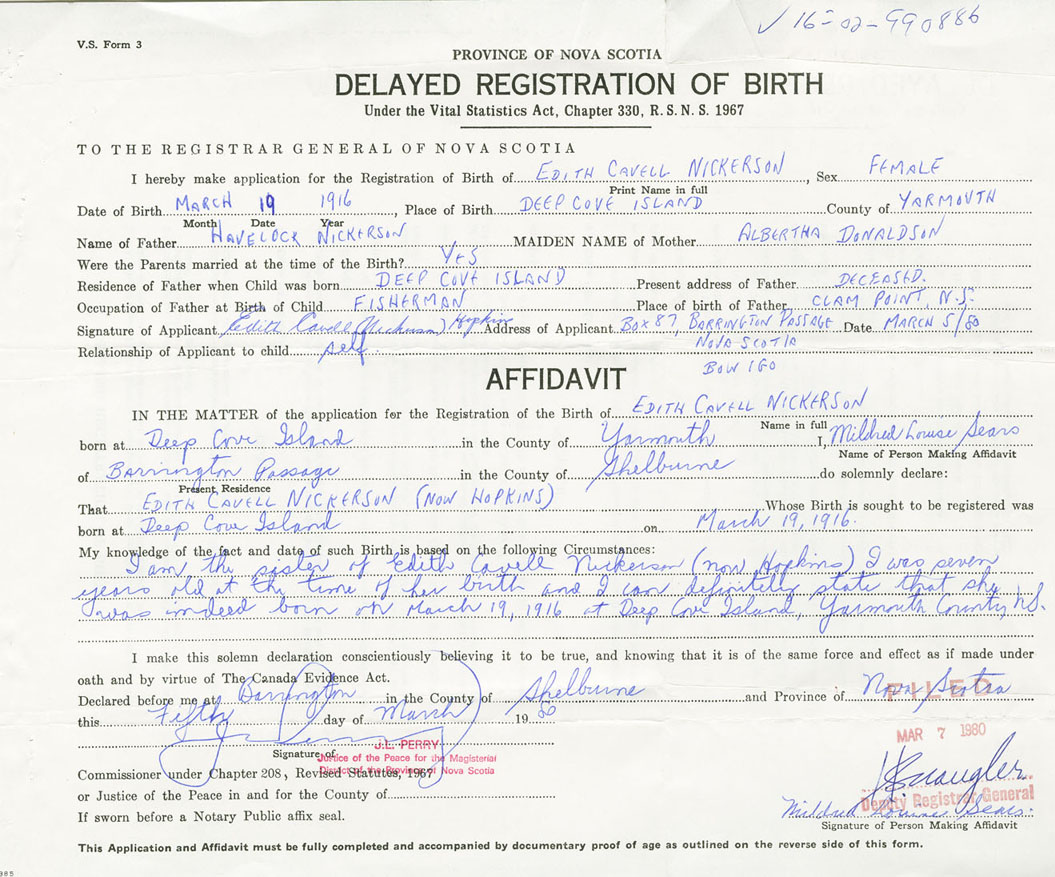 ✓ 16-02-990886
V.S. Form 3
PROVINCE OF NOVA SCOTIA
DELAYED REGISTRATION OF BIRTH
Under the Vital Statistics Act, Chapter 330, R.S.N.S. 1967
TO THE REGISTRAR GENERAL OF NOVA SCOTIA
I hereby make application for the Registration of Birth of EDITH CAVELL NICKERSON, Sex FEMALE
Print Name in full
Date of Birth MARCH 19 1916, Place of Birth DEEP COVE ISLAND County of YARMOUTH
Month Date Year
Name of Father HAVELOCK NICKERSON MAIDEN NAME of Mother ALBERTHA DONALDSON
Were the Parents married at the time of the Birth? YES
Residence of Father when Child was born DEEP COVE ISLAND Present address of Father DECEASED.
Occupation of Father at Birth of Child FISHERMAN Place of birth of Father CLAM POINT, N.S.
Signature of Applicant Edith Cavell (Nickerson) Hopkins Address of Applicant BOX 87, BARRINGTON PASSAGE Date MARCH 5/80
NOVA SCOTIA
Relationship of Applicant to child self.
BOW 1G0
AFFIDAVIT
IN THE MATTER of the application for the Registration of the Birth of EDITH CAVELL NICKERSON
Name in full
born at Deep Cove Island in the County of Yarmouth I, Mildred Louise Sears
Name of Person Making Affidavit
of Barrington Passage in the County of Shelburne do solemnly declare:
Present Residence
That EDITH CAVELL NICKERSON (NOW HOPKINS) Whose Birth is sought to be registered was
born at Deep Cove Island on March 19, 1916.
My knowledge of the fact and date of such Birth is based on the following Circumstances:
I am the sister of Edith Cavell Nickerson (now Hopkins) I was seven
years old at the time of her birth and I can definitely state that she
was indeed born on March 19, 1916 at Deep Cove Island, Yarmouth County, N.S.
I make this solemn declaration conscientiously believing it to be true, and knowing that it is of the same force and effect as if made under
oath and by virtue of The Canada Evidence Act.
Declared before me at Barrington in the County of Shelburne and Province of Nova Scotia
FILED
this Fifth day of March 1980
MAR 7 1980
J.L. PERRY
Signature of
Justice of the Peace for the Magisterial
Commissioner under Chapter 208, Revised Statutes, 1967
District of the Province of Nova Scotia
or Justice of the Peace in and for the County of
Deputy Registrar General
Mildred Louise Sears
If sworn before a Notary Public affix seal.
Signature of Person Making Affidavit
This Application and Affidavit must be fully completed and accompanied by documentary proof of age as outlined on the reverse side of this form.